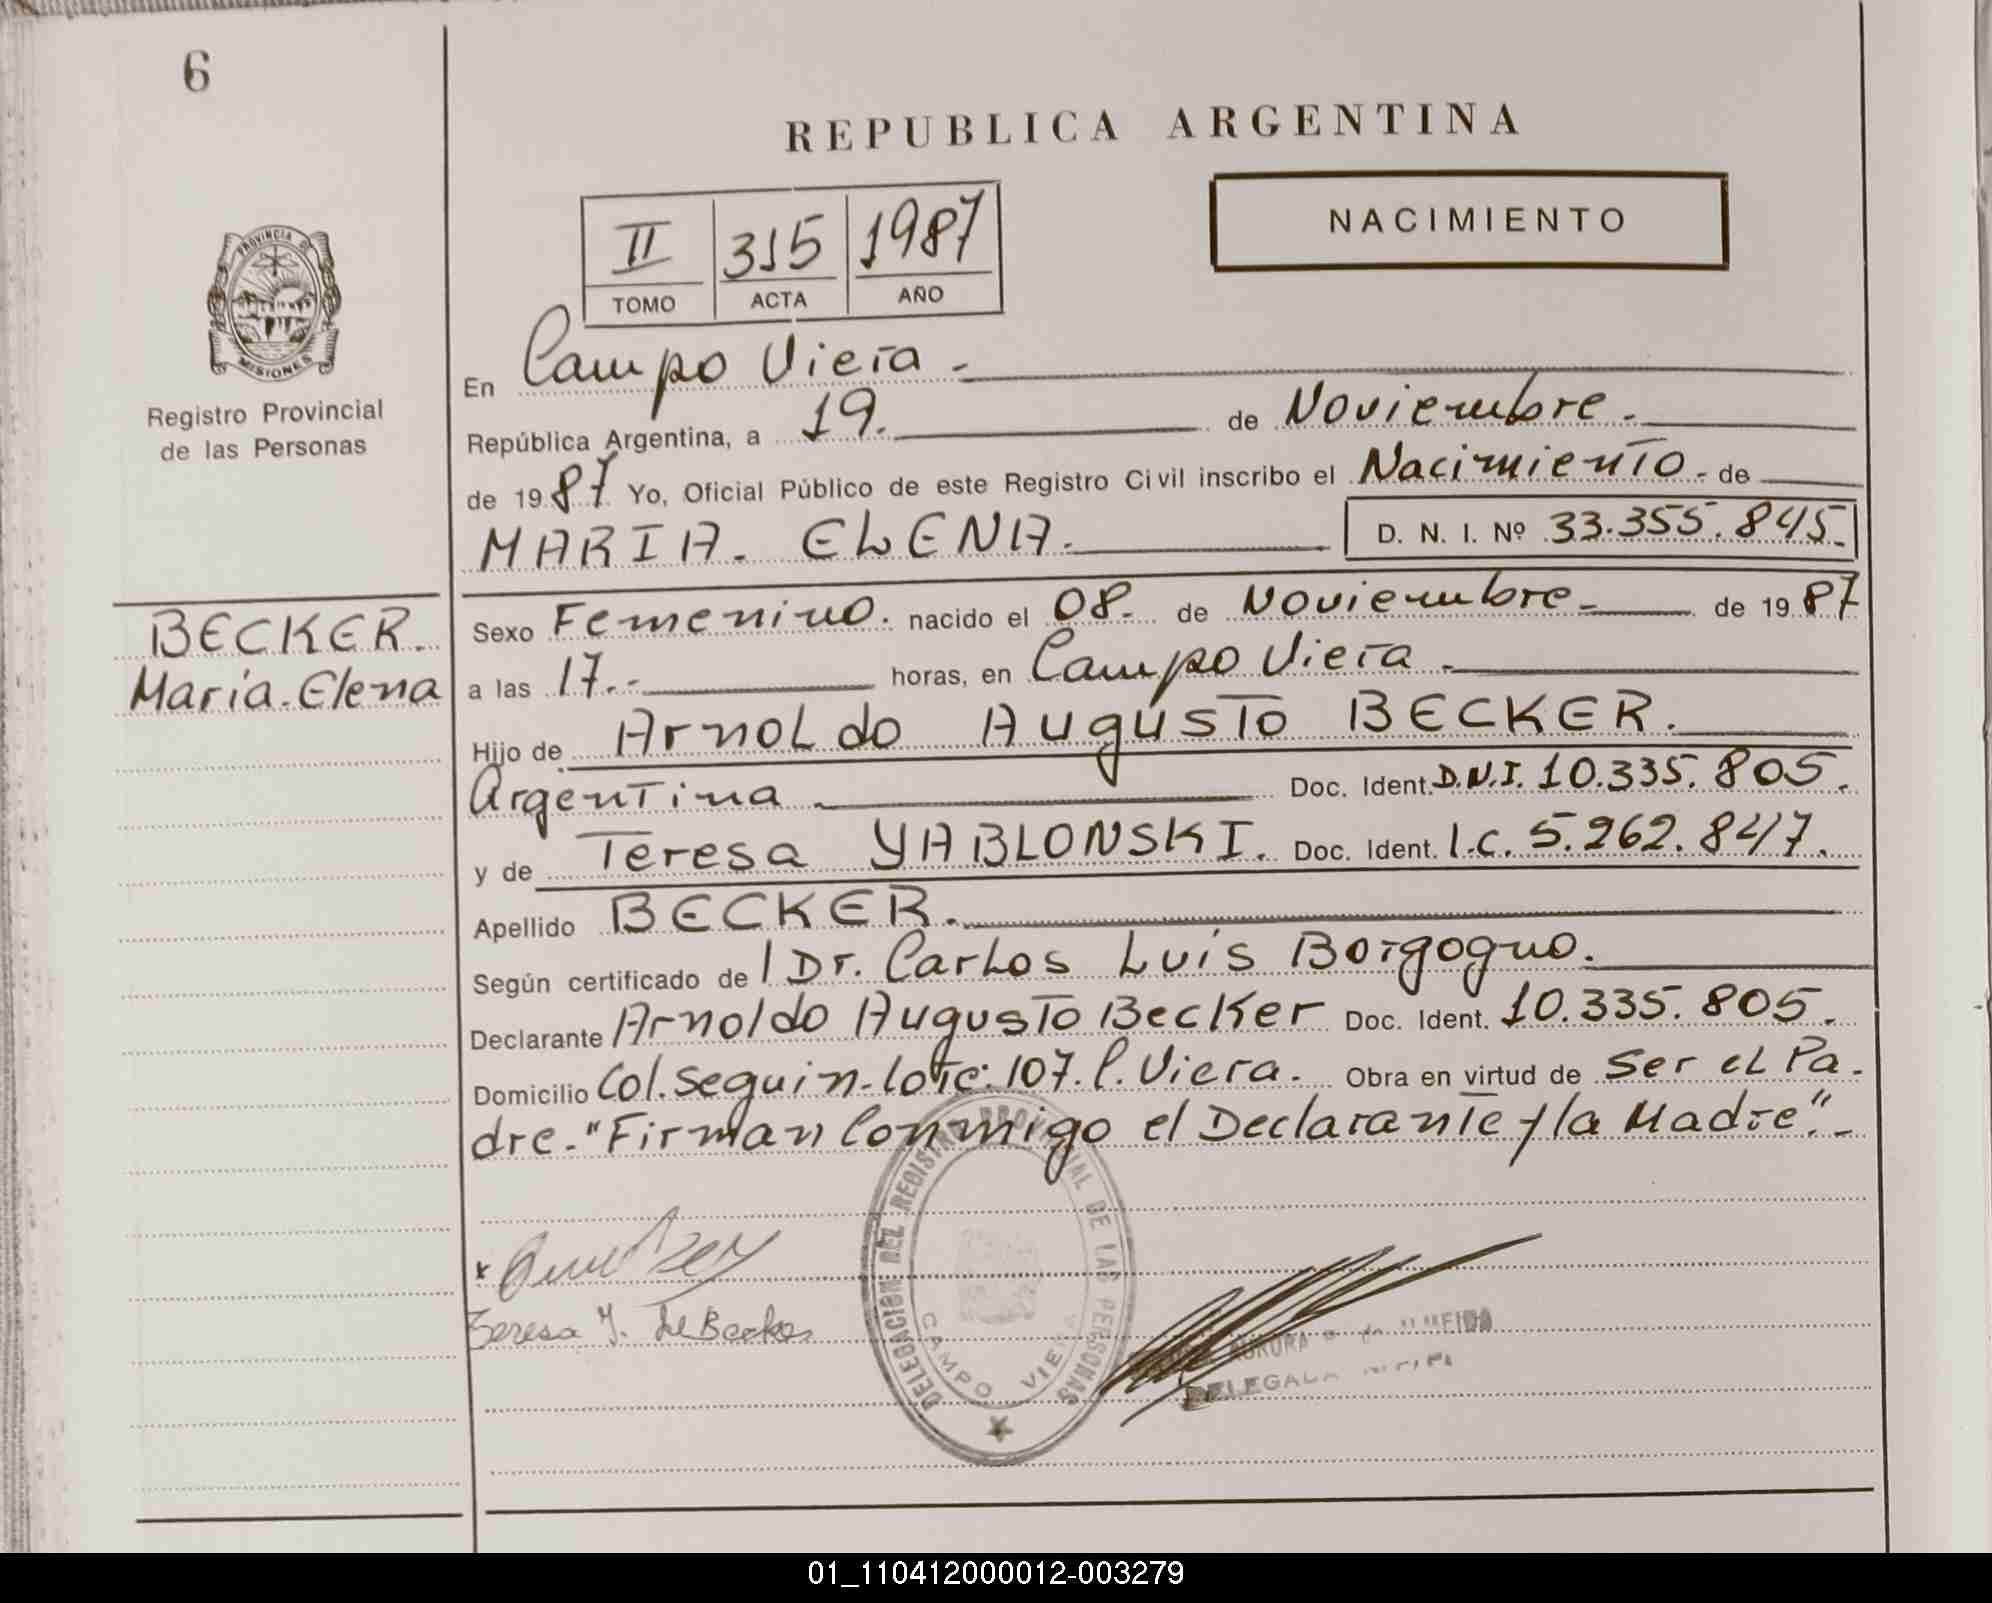 6
REPUBLICA ARGENTINA
NACIMIENTO
II 315 1987
TOMO ACTA AÑO
PROVINCIA DE
MISIONES
Registro Provincial
de las Personas
En Campo Viera.-
República Argentina, a 19. de Noviembre.-
de 1987 Yo, Oficial Público de este Registro Civil inscribo el Nacimiento.- de
MARIA. ELENA. D. N. I. Nº 33.355.845.-
BECKER.
María.Elena
Sexo Femenino. nacido el 08.- de Noviembre.- de 1987
a las 17.- horas, en Campo Viera.-
Hijo de Arnoldo Augusto BECKER.
Argentina.- Doc. Ident. D.N.I. 10.335.805.
y de Teresa YABLONSKI. Doc. Ident. I.C. 5.262.847.
Apellido BECKER.
Según certificado de / Dr. Carlos Luis Borgogno.
Declarante Arnoldo Augusto Becker Doc. Ident. 10.335.805.
Domicilio Col. Seguin-lote:107.C.Viera. Obra en virtud de ser el Pa-
dre.-"Firman Conmigo el Declarante y la Madre".-
Teresa Y. de Becker
DELEGACION DEL REGISTRO PROVINCIAL DE LAS PERSONAS
CAMPO VIERA
AURORA
01_110412000012-003279